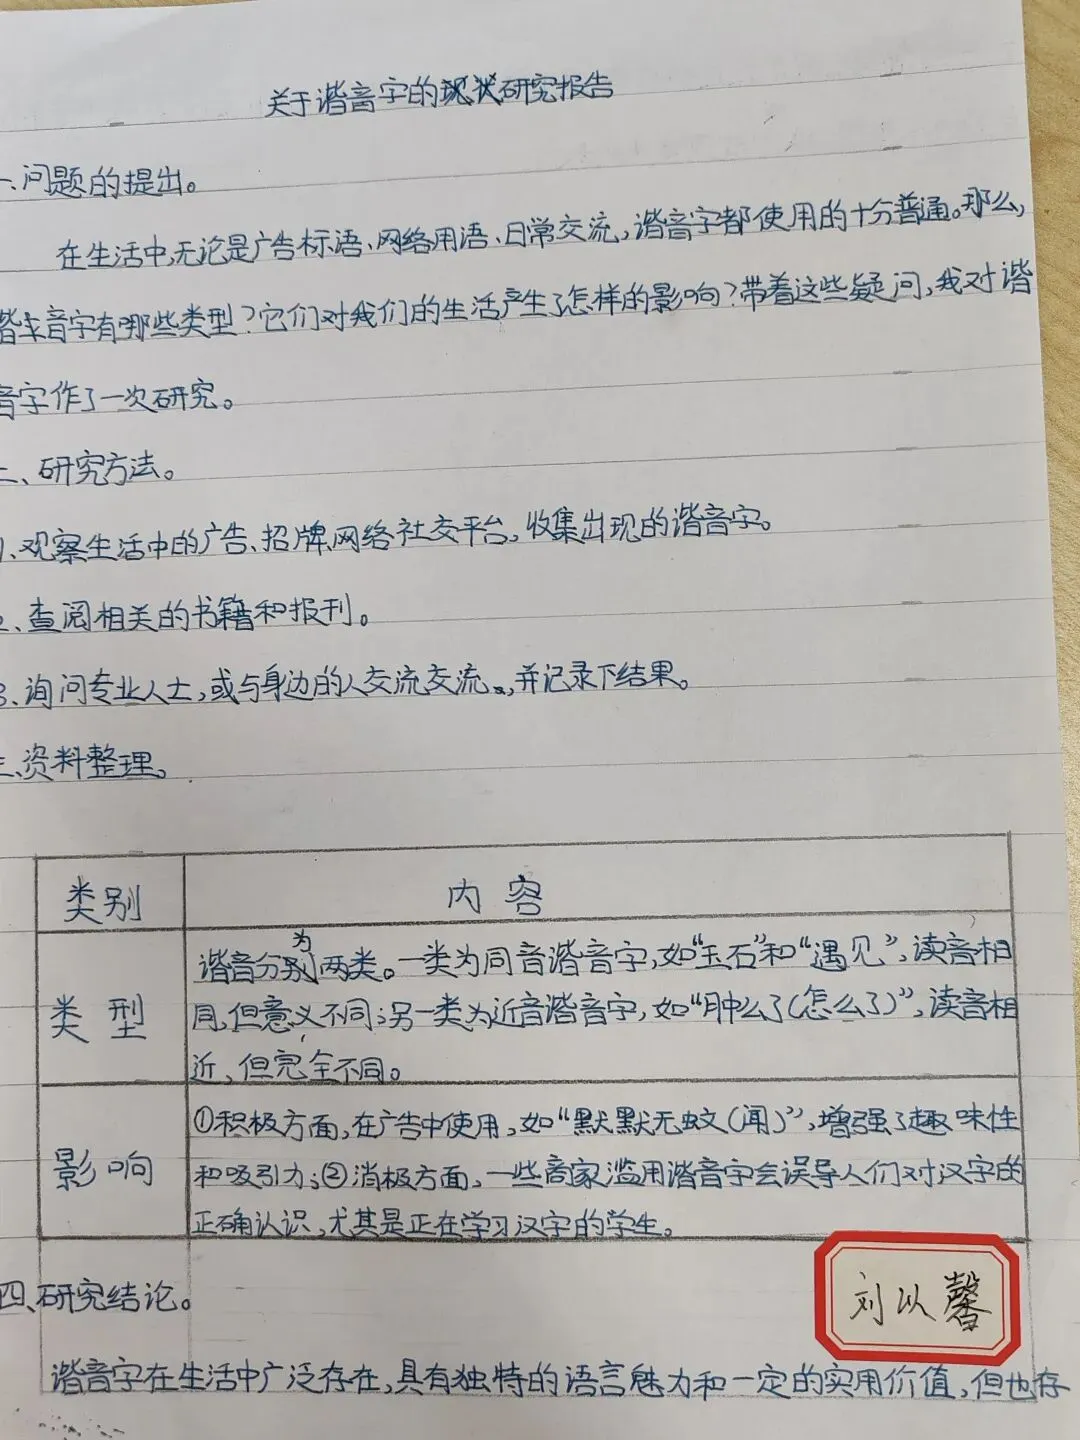 关于谐音字的现状研究报告
一、问题的提出。
在生活中,无论是广告标语、网络用语、日常交流,谐音字都使用的十分普通。那么,
谐音字有哪些类型?它们对我们的生活产生了怎样的影响?带着这些疑问,我对谐
音字作了一次研究。
二、研究方法。
1、观察生活中的广告、招牌、网络社交平台,收集出现的谐音字。
2、查阅相关的书籍和报刊。
3、询问专业人士,或与身边的人交流交流,并记录下结果。
三、资料整理。
类别 内容
类型
谐音分别为两类。一类为同音谐音字,如“玉石”和“遇见”,读音相
同,但意义不同;另一类为近音谐音字,如“肿么了(怎么了)”,读音相
近,但完全不同。
影响
①积极方面,在广告中使用,如“默默无蚊(闻)”,增强了趣味性
和吸引力;②消极方面,一些商家滥用谐音字会误导人们对汉字的
正确认识,尤其是正在学习汉字的学生。
四、研究结论。
刘以馨
谐音字在生活中广泛存在,具有独特的语言魅力和一定的实用价值,但也存